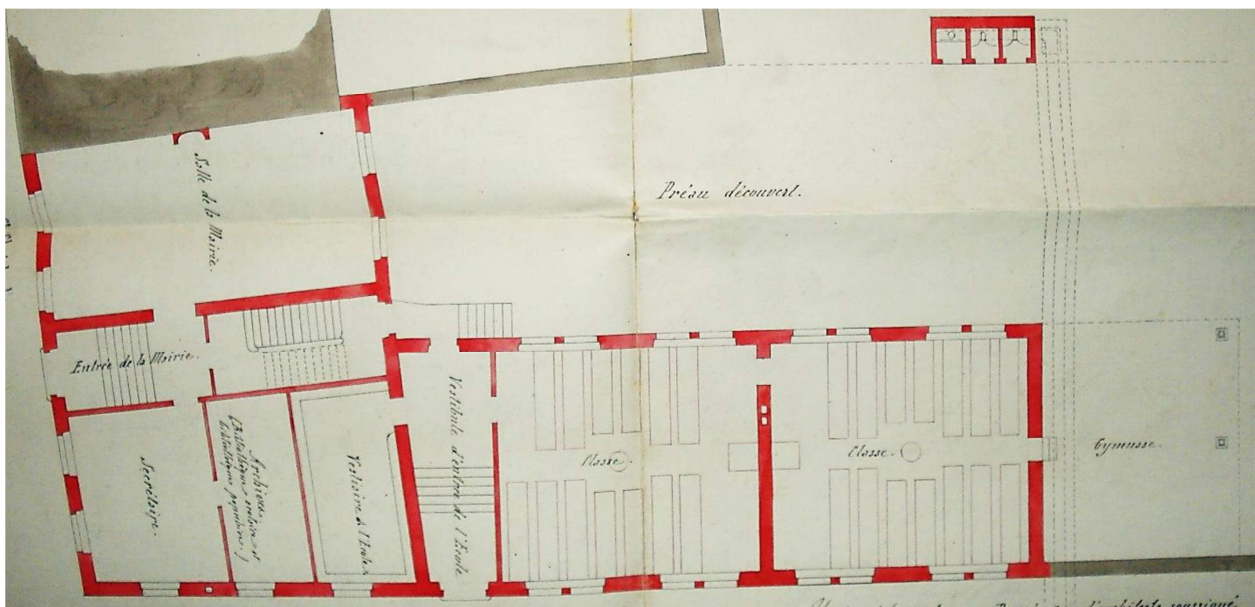 Préau découvert.
Salle de la Mairie.
Entrée de la Mairie.
Secrétaire.
Archives.
(Bibliothèques scolaires et
bibliothèques populaires.)
Vestiaire de l'Ecole
Vestibule d'entrée de l'Ecole
Classe.
Classe.
Gymnase.
l'architecte soussigné